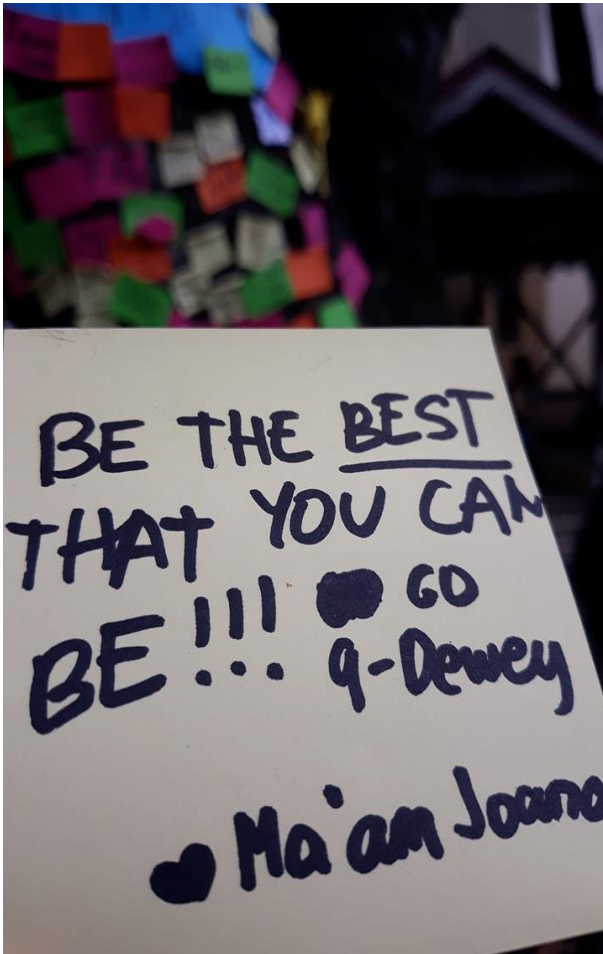 BE THE BEST
THAT YOU CAN
BE!!! GO
9-Dewey
Ma'am Joana